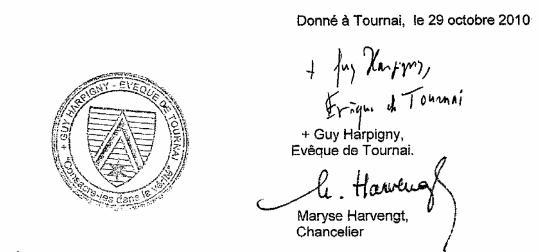 Donné à Tournai, le 29 octobre 2010
+ Guy Harpigny,
Evêque de Tournai
+ Guy Harpigny,
Evêque de Tournai.
+ GUY HARPIGNY - EVEQUE DE TOURNAI
"Consacre-les dans la vérité"
M. Harvengt
Maryse Harvengt,
Chancelier